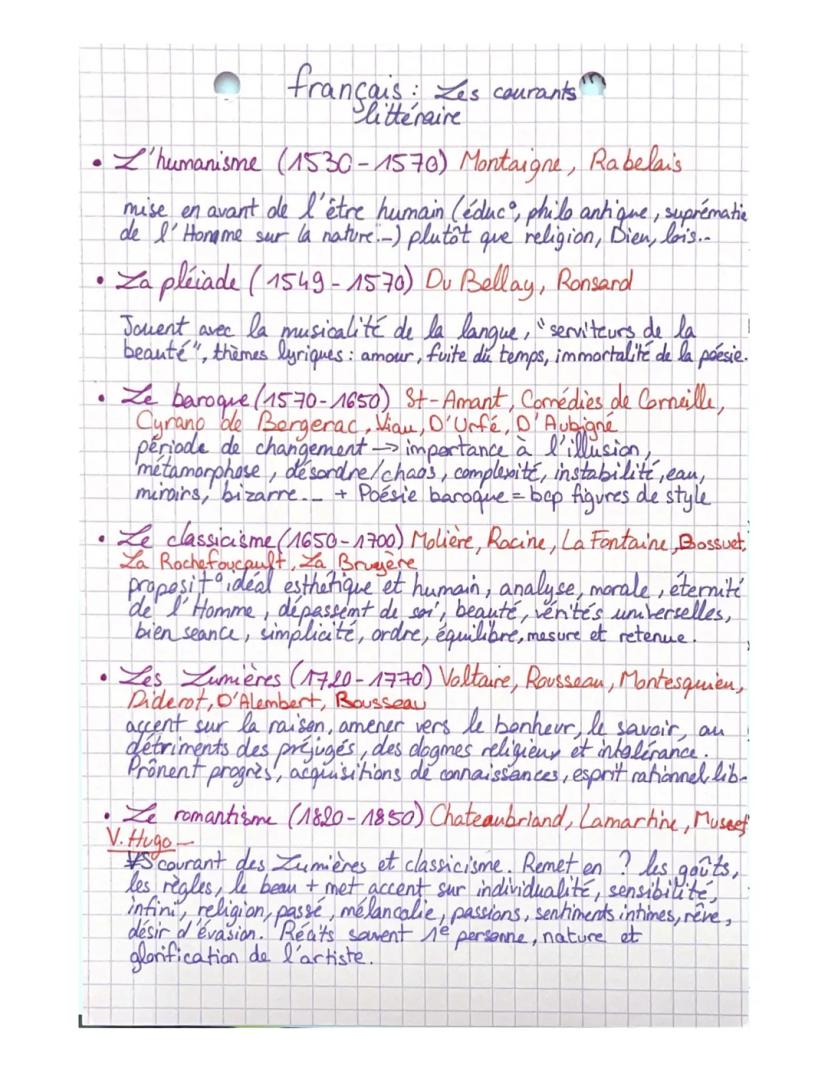 français : Les courants
littéraire
• L'humanisme (1530-1570) Montaigne, Rabelais
mise en avant de l'être humain (éduc°, philo antique, suprématie
de l'Homme sur la nature...) plutôt que religion, Dieu, lois...
• La pléiade (1549-1570) Du Bellay, Ronsard
Jouent avec la musicalité de la langue, "serviteurs de la
beauté", thèmes lyriques : amour, fuite du temps, immortalité de la poésie.
• Le baroque (1570-1650) St-Amant, Comédies de Corneille,
Cyrano de Bergerac, Viau, D'Urfé, D'Aubigné
période de changement → importance à l'illusion,
métamorphose, désordre/chaos, complexité, instabilité, eau,
miroirs, bizarre... + Poésie baroque = bcp figures de style
• Le classicisme (1650-1700) Molière, Racine, La Fontaine, Bossuet,
La Rochefoucault, La Bruyère
proposit° idéal esthétique et humain, analyse, morale, éternité
de l'Homme, dépassemt de soi, beauté, vérités universelles,
bien seance, simplicité, ordre, équilibre, mesure et retenue.
• Les Lumières (1720-1770) Voltaire, Rousseau, Montesquieu,
Diderot, D'Alembert, Bousseau
accent sur la raison, amener vers le bonheur, le savoir, au
détriments des préjugés, des dogmes religieux et intolérance.
Prônent progrès, acquisitions de connaissances, esprit rationnel lib-
• Le romantisme (1820-1850) Chateaubriand, Lamartine, Musset
V. Hugo -
VS courant des Lumières et classicisme. Remet en ? les goûts,
les règles, le beau + met accent sur individualité, sensibilité,
infini, religion, passé, mélancolie, passions, sentiments intimes, rêve,
désir d'évasion. Récits souvent 1e personne, nature et
glorification de l'artiste.